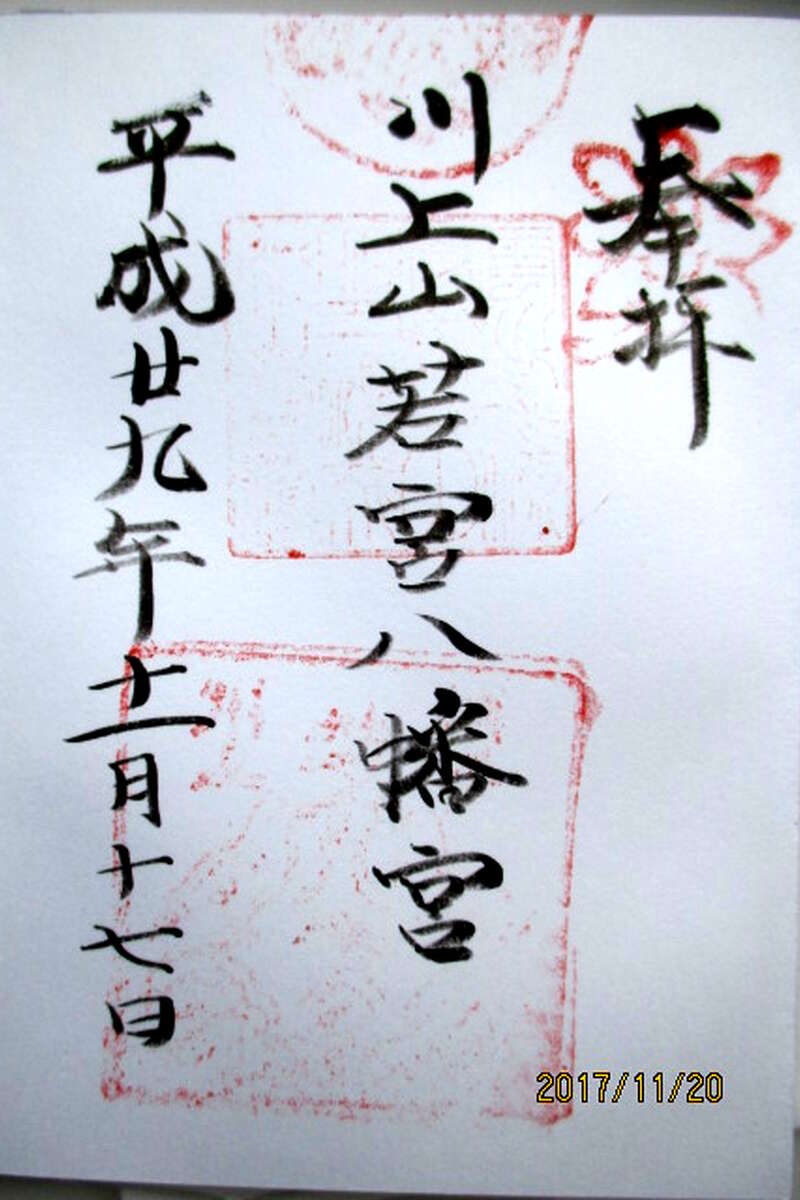 奉拝
川上山若宮八幡宮
平成廿九年十一月十七日
2017/11/20